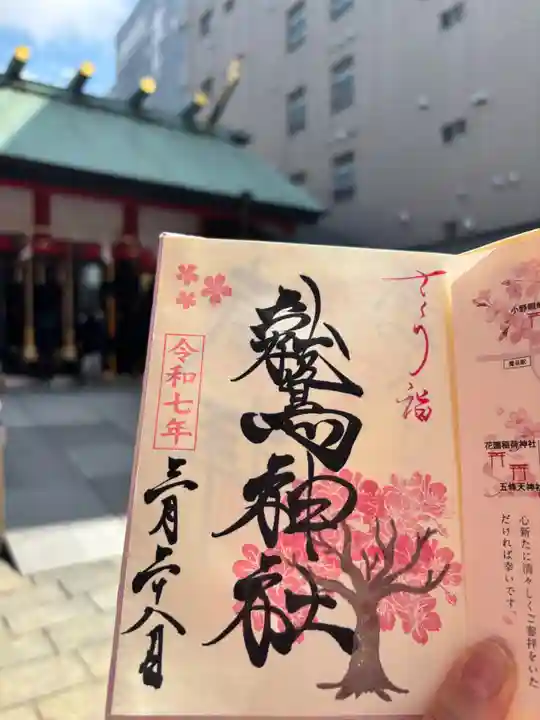 さくら詣
鷲神社
令和七年
三月二十八日
小野照崎
鶯谷駅
花園稲荷神社
五條天神社
心新たに清々しくご参拝をいた
だければ幸いです。